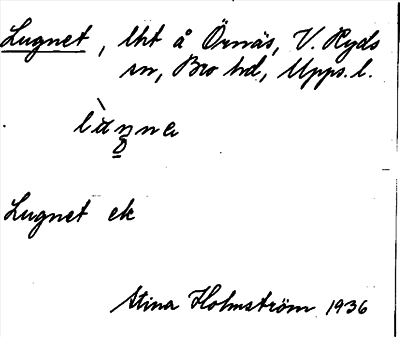 Lugnet, lht å Örnäs, V. Ryds
sn, Bro hd, Upps. l.
Lugnet ek
Stina Holmström 1936